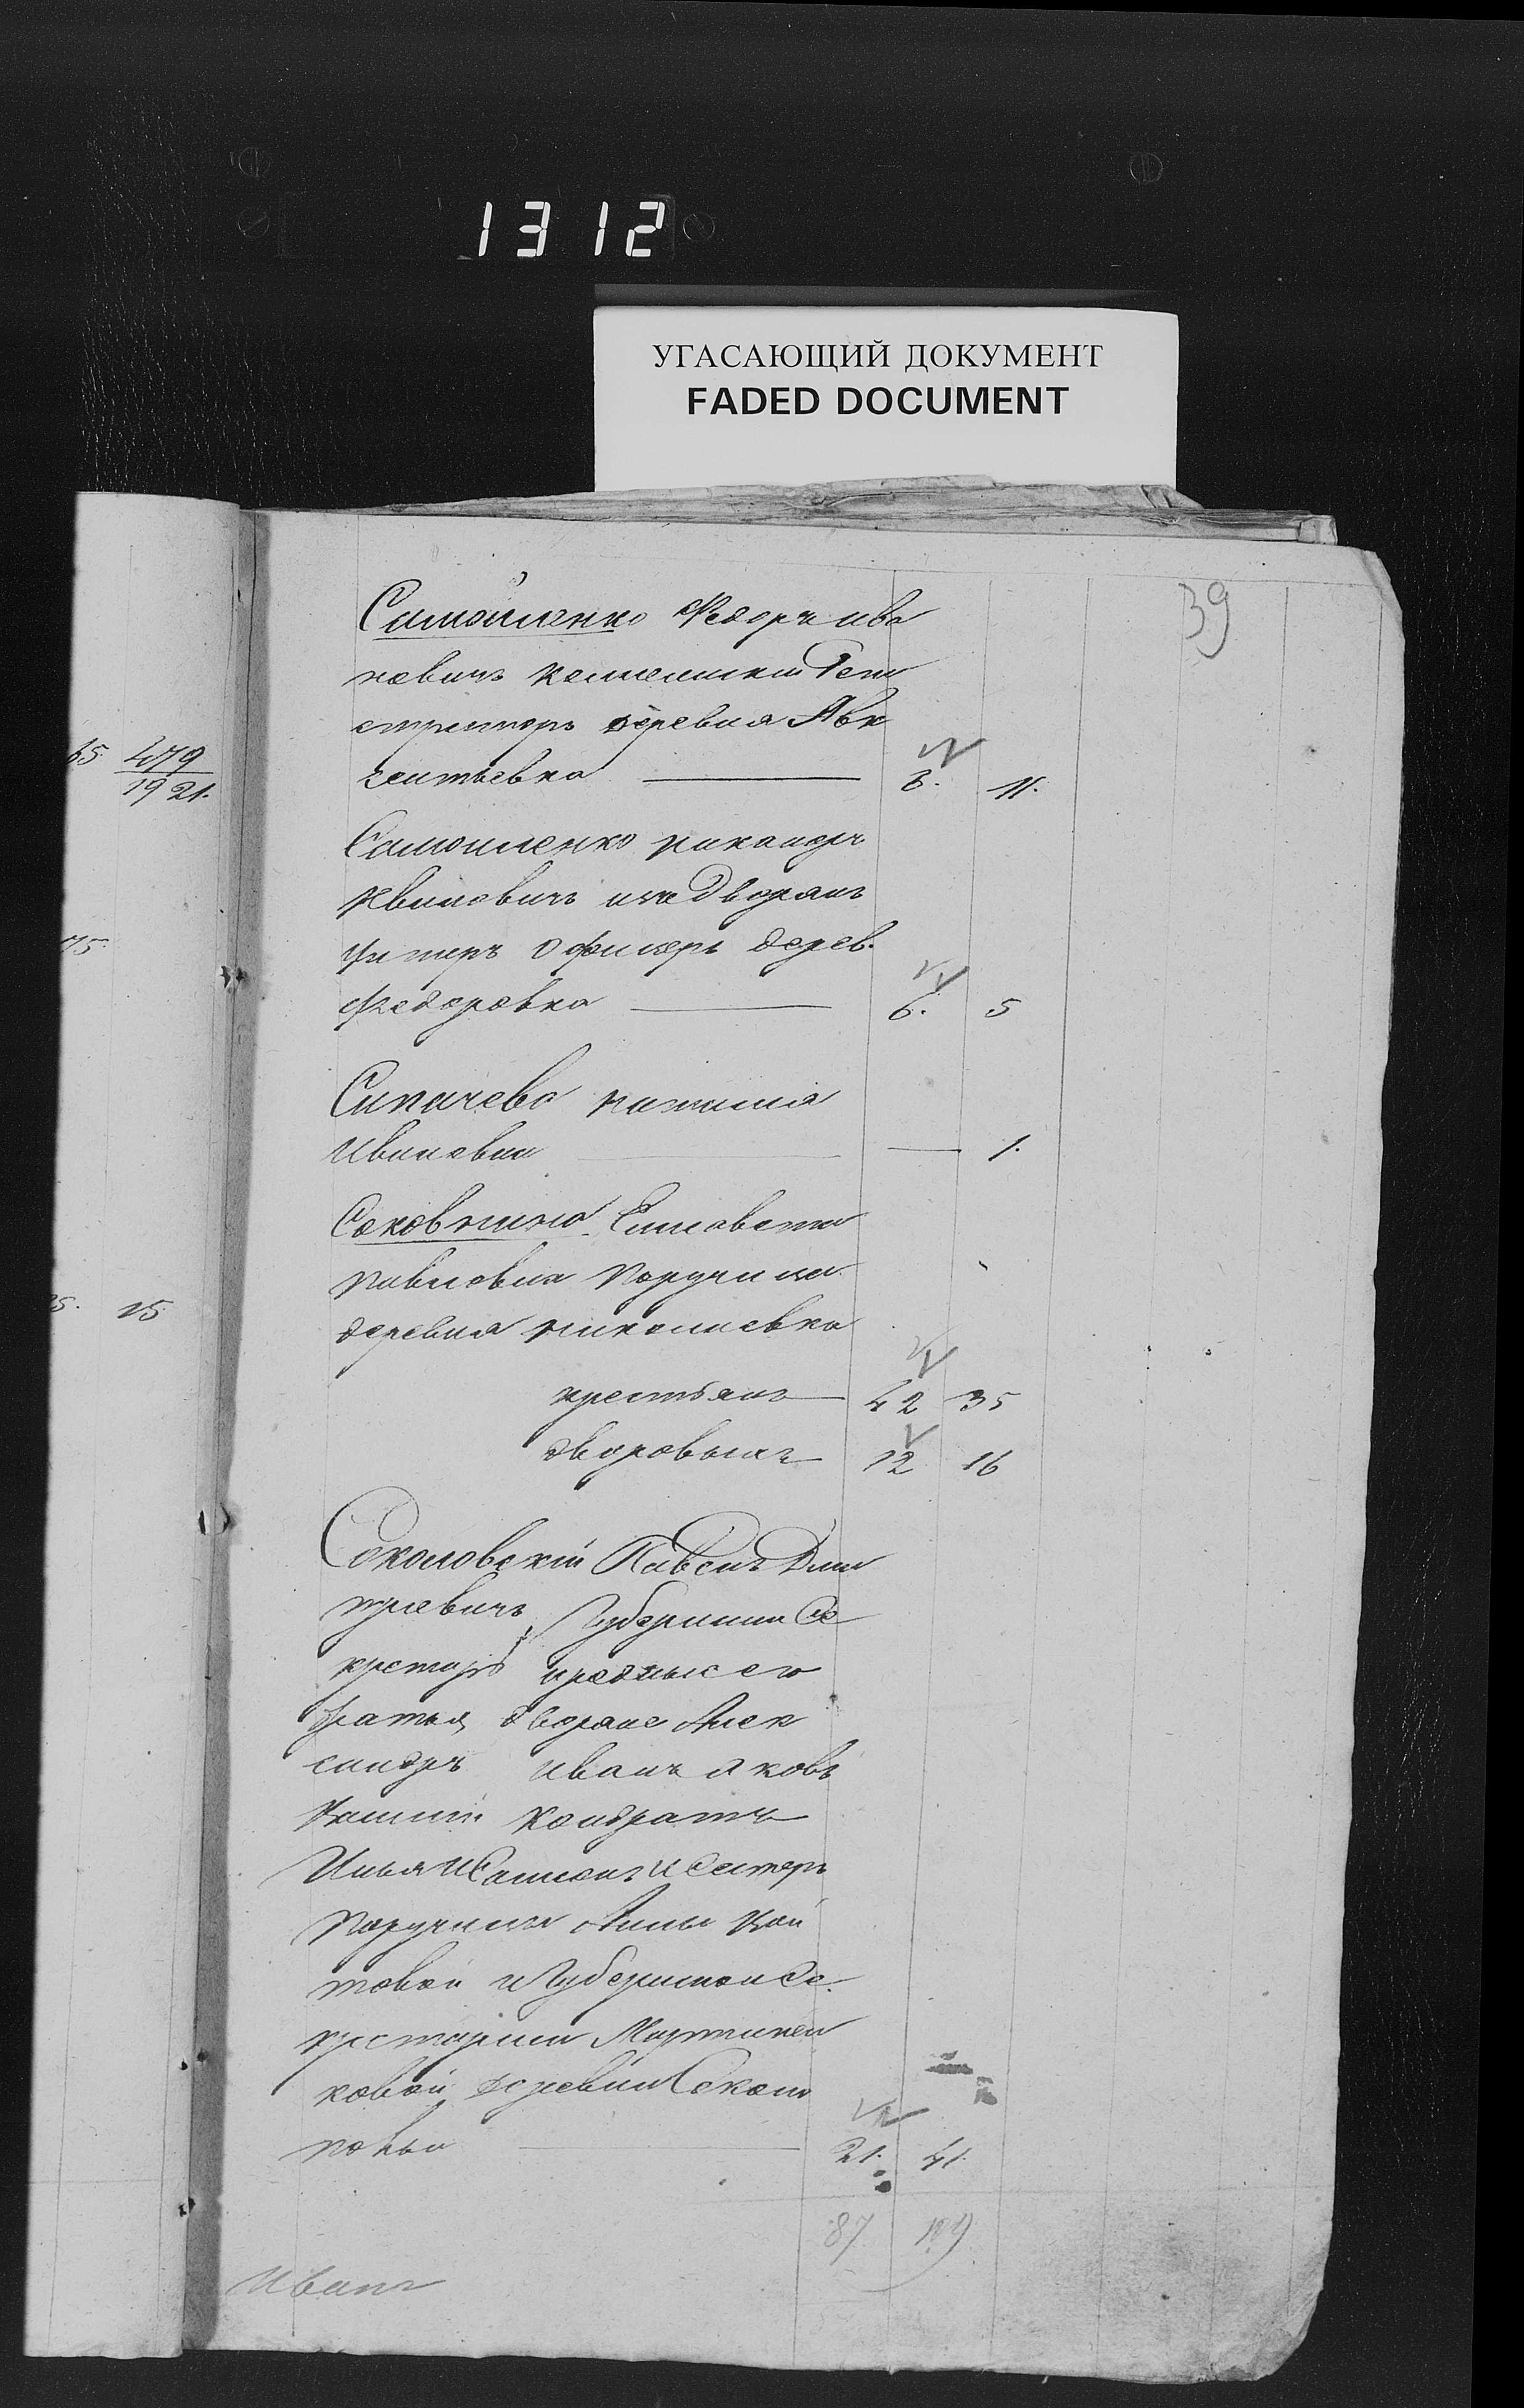 1312
УГАСАЮЩИЙ ДОКУМЕНТ
FADED DOCUMENT
39
Самойленко Федоръ ива
новичъ коллежский Реги
страторъ деревня Авк
сентьевка 8. 11.
65. 479
1921.
Самойленко никаноръ
Ивановичъ изъ Дворянъ
унтеръ Офицеръ дерев.
Федоровка 6. 5
75.
Сипачева наталия
Ивановна — 1.
Соковнина Елисавета
павловна поручица
25. 15
деревня николаевка
крестьянъ 42 35
дворовыхъ 12 16
Соколовскій Павелъ Дми
триевичъ, Губернский Се
кретарь, иродные его
братья, дворяне Алек
сандръ иванъ яковъ
Кондратъ
Илья и Самсонъ и Сестеръ
поручица Анны
товой и Губернской Се.
кретарши Мартинен
ковой, деревни Сокол
21. 41.
87 109
Иванъ